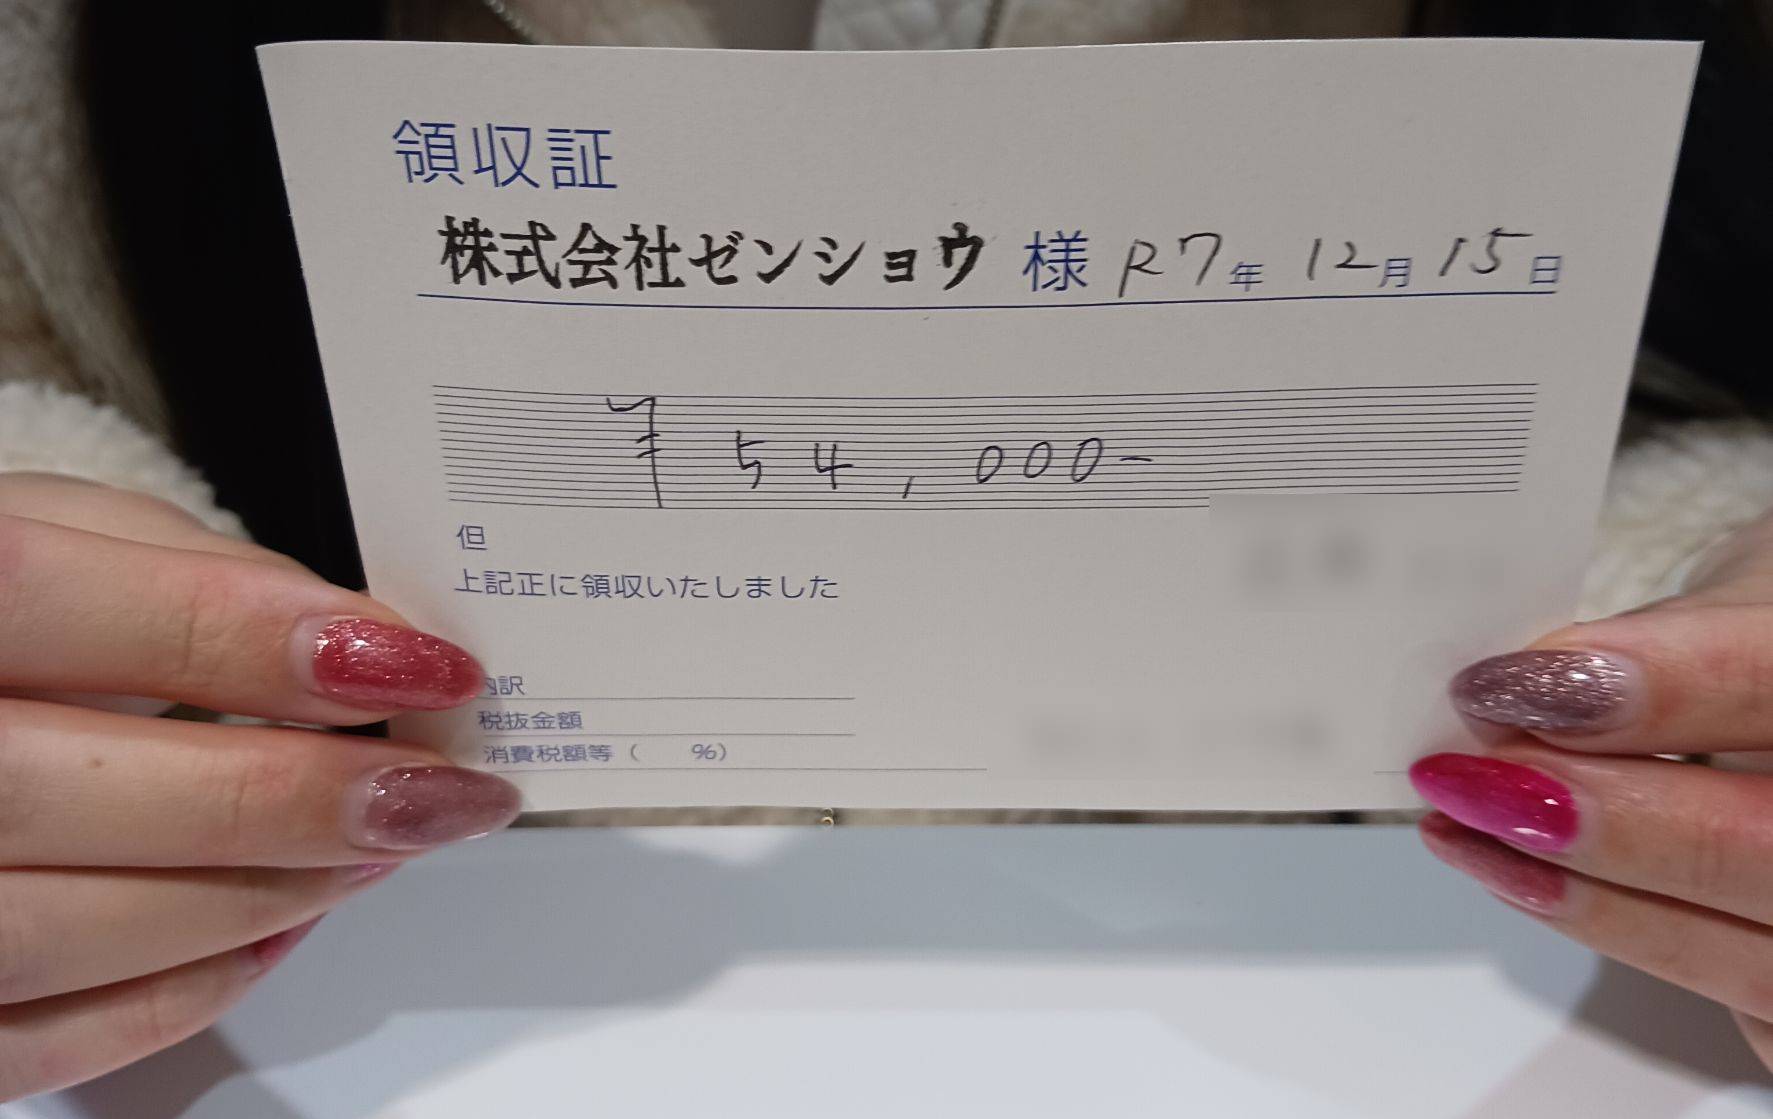 領収証
株式会社ゼンショウ 様 R7年 12月 15日
¥ 54,000-
但
上記正に領収いたしました
内訳
税抜金額
消費税額等 ( %)